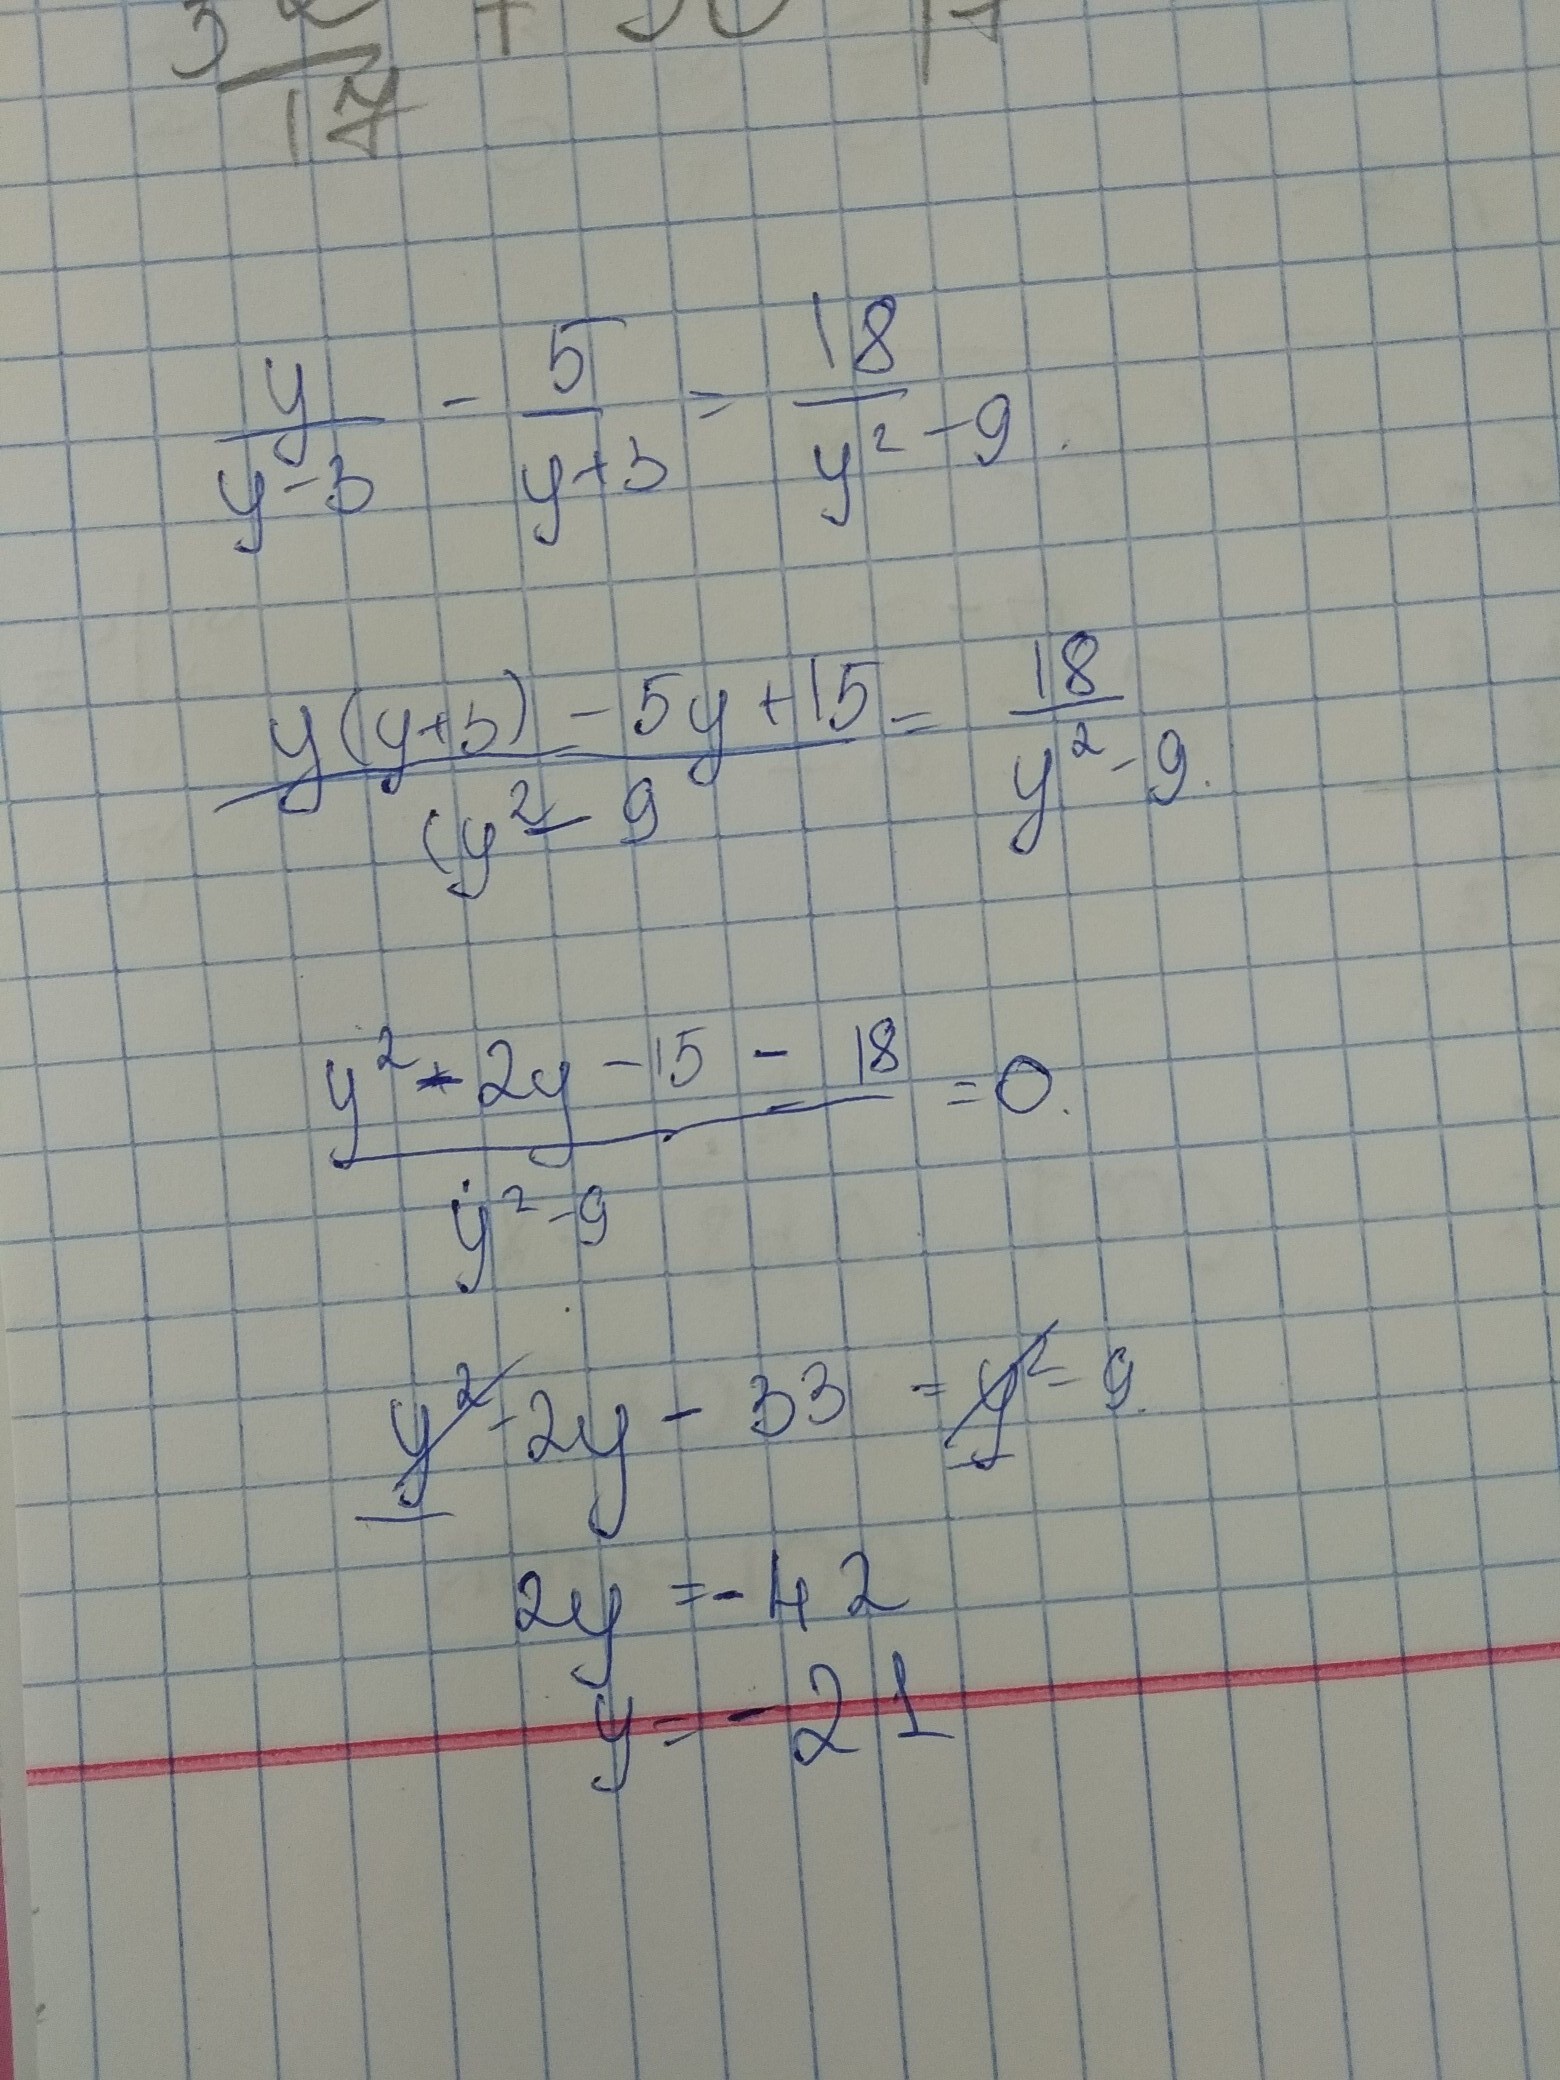 17
y/(y-3) - 5/(y+3) = 18/(y²-9).
(y(y+3) - 5y+15)/((y²-9) = 18/(y²-9).
(y²-2y-15-18)/(y²-9) = 0.
y²-2y-33 = y²-9.
2y=-42
y=-21